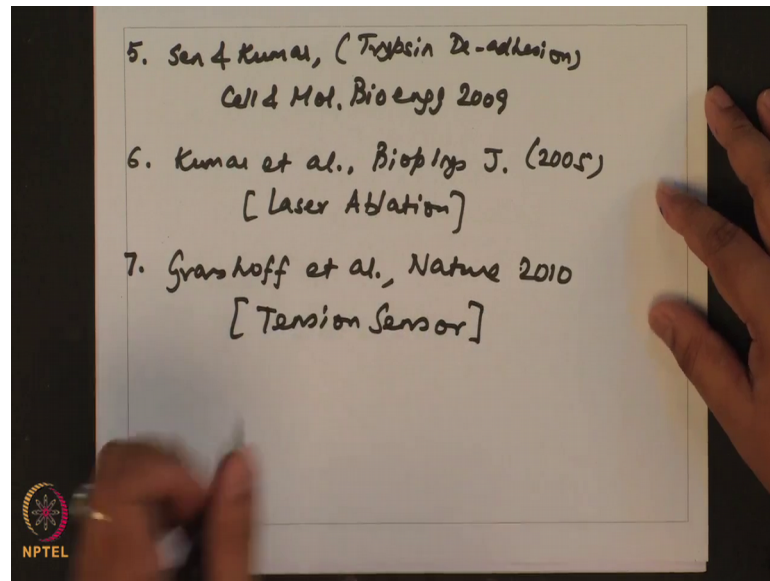 5. Sen & Kumar, (Trypsin De-adhesion)
Cell & Mol. Bioengg 2009
6. Kumar et al., Biophys J. (2005)
[Laser Ablation]
7. Grashoff et al., Nature 2010
[Tension Sensor]
NPTEL